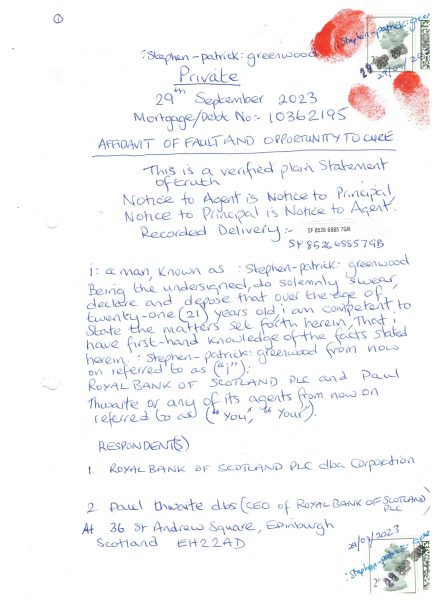 ①
:Stephen-patrick:greenwood
Private
29th September 2023
Mortgage/Debt No:- 10362195
AFFIDAVIT OF FAULT AND OPPORTUNITY TO CURE
This is a verified plain Statement
of truth
Notice to Agent is Notice to Principal,
Notice to Principal is Notice to Agent.
Recorded Delivery:- SF 8526 6885 7GB
SF 8526 6885 7GB
i: a man, known as :Stephen-patrick: greenwood
Being the undersigned, do solemnly swear,
declare and depose that over the age of,
twenty-one (21) years old, i am competent to
State the matters set forth herein, That i
have first-hand knowledge of the facts stated
herein. :Stephen-patrick: greenwood from now
on referred to as ("i"):
ROYAL BANK OF SCOTLAND PLC and Paul
Thwaite or any of its agents from now on
referred to as ("You", "Your").
RESPONDENT(S)
1. ROYAL BANK OF SCOTLAND PLC dba Corporation
2 Paul thwaite dbs (CEO of ROYAL BANK OF SCOTLAND
PLC)
At 36 St Andrew Square, Edinburgh
Scotland EH22AD
:Stephen-patrick: gree
29/09/2023
:Stephen-patrick: gree